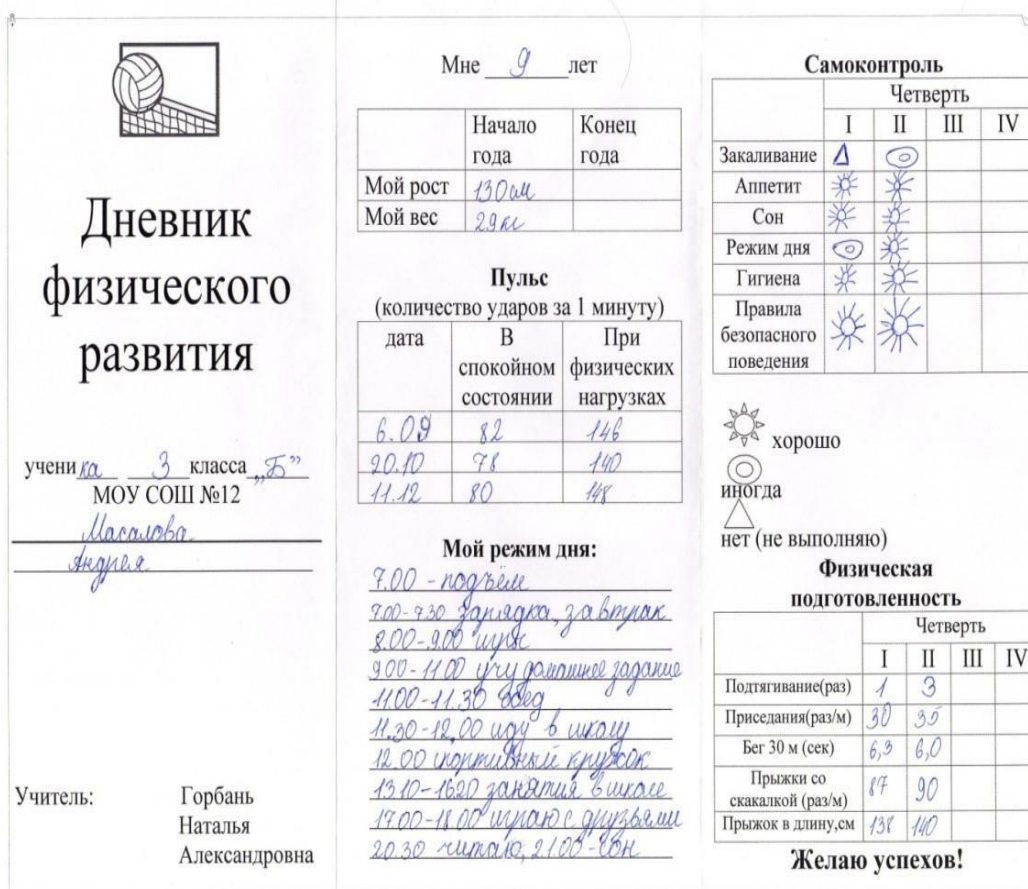 Дневник
физического
развития
ученика 3 класса „Б”
МОУ СОШ №12
Масалова
Андрея
Учитель: Горбань
Наталья
Александровна
Мне 9 лет
Начало года Конец года
Мой рост 130 см
Мой вес 29 кг
Пульс
(количество ударов за 1 минуту)
дата В спокойном состоянии При физических нагрузках
6.09 82 146
20.10 78 140
11.12 80 148
Мой режим дня:
7.00 - подъём
7.00-7.30 зарядка, завтрак
8.00-9.00 игры
9.00-11.00 учу домашнее задание
11.00-11.30 обед
11.30-12.00 иду в школу
12.00 спортивный кружок
13.10-16.20 занятия в школе
17.00-18.00 играю с друзьями
20.30 читаю, 21.00-сон
Самоконтроль
Четверть
I II III IV
Закаливание
Аппетит
Сон
Режим дня
Гигиена
Правила
безопасного
поведения
хорошо
иногда
нет (не выполняю)
Физическая
подготовленность
Четверть
I II III IV
Подтягивание(раз) 1 3
Приседания(раз/м) 30 35
Бег 30 м (сек) 6,3 6,0
Прыжки со
скакалкой (раз/м) 87 90
Прыжок в длину,см 138 140
Желаю успехов!